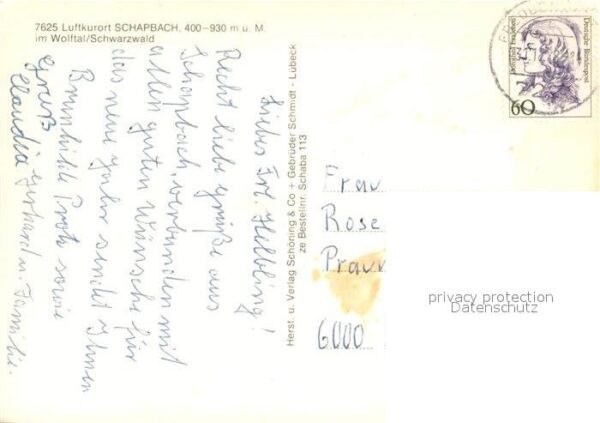 7625 Luftkurort SCHAPBACH, 400-930 m ü. M.
im Wolftal/Schwarzwald
Liebes Frl. Helbling!
Recht liebe Grüße aus
Schapbach, verbunden mit
allen guten Wünsche für
das neue Jahr sendet Ihnen
Brunhilde Proto sowie
Gruß
Claudia Gerhard u. Familie.
Herst. u. Verlag Schöning & Co + Gebrüder Schmidt - Lübeck
ze Bestellnr. Schaba 113
Deutsche Bundespost
60
Frau
Rose
Prau
6000
privacy protection
Datenschutz